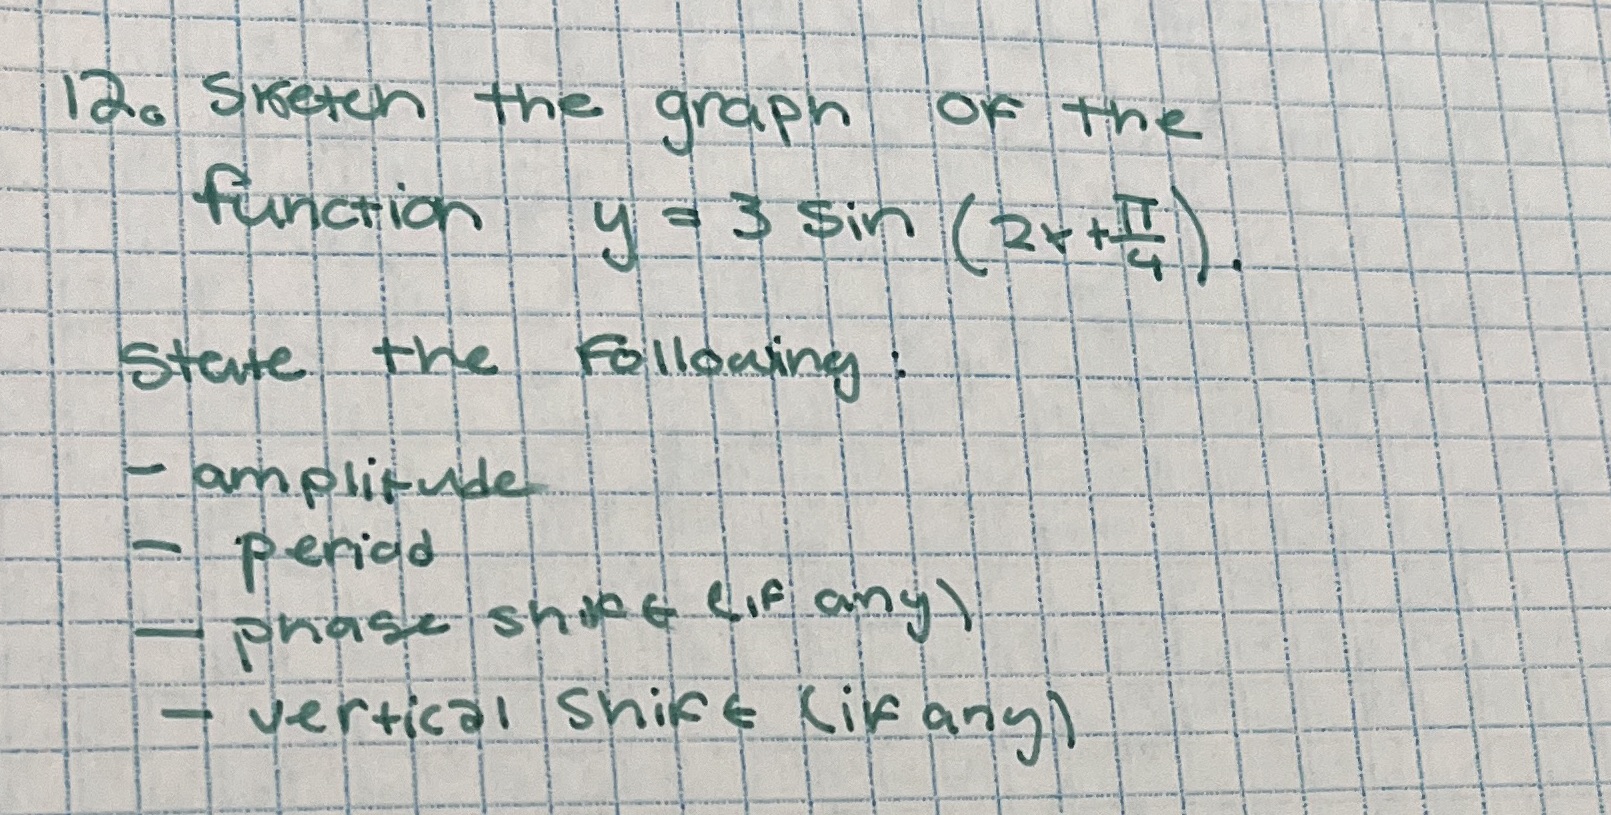 12. Sketch the graph of the
function y = 3 sin (2x + π/4).
State the following:
- amplitude
- period
- phase shift (if any)
- vertical shift (if any)